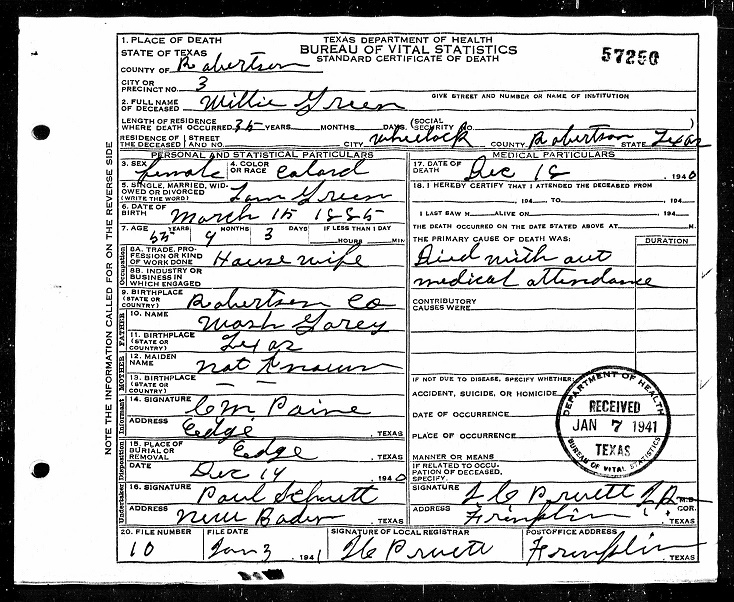 1. PLACE OF DEATH
STATE OF TEXAS
COUNTY OF Robertson
TEXAS DEPARTMENT OF HEALTH
BUREAU OF VITAL STATISTICS
STANDARD CERTIFICATE OF DEATH
57250
CITY OR PRECINCT NO. 3
GIVE STREET AND NUMBER OR NAME OF INSTITUTION
2. FULL NAME OF DECEASED Willie Green
LENGTH OF RESIDENCE WHERE DEATH OCCURRED 35 YEARS MONTHS DAYS (SOCIAL SECURITY NO. )
RESIDENCE OF THE DECEASED STREET AND NO. CITY Wheelock COUNTY Robertson STATE Texas
PERSONAL AND STATISTICAL PARTICULARS
3. SEX female 4. COLOR OR RACE Colard
5. SINGLE, MARRIED, WIDOWED OR DIVORCED (WRITE THE WORD) Green
6. DATE OF BIRTH March 15 1885
7. AGE 55 YEARS 9 MONTHS 3 DAYS IF LESS THAN 1 DAY HOURS MIN
Occupation
8A. TRADE, PROFESSION OR KIND OF WORK DONE House wife
8B. INDUSTRY OR BUSINESS IN WHICH ENGAGED
9. BIRTHPLACE (STATE OR COUNTRY) Robertson Co
FATHER
10. NAME Wash
11. BIRTHPLACE (STATE OR COUNTRY) Texas
MOTHER
12. MAIDEN NAME not known
13. BIRTHPLACE (STATE OR COUNTRY) — —
Informant
14. SIGNATURE C M Paine
ADDRESS Edge, TEXAS
Disposition
15. PLACE OF BURIAL OR REMOVAL Edge, TEXAS
DATE Dec 19 1940
Undertaker
16. SIGNATURE Paul
ADDRESS New Baden, TEXAS
MEDICAL PARTICULARS
17. DATE OF DEATH Dec 18, 1940
18. I HEREBY CERTIFY THAT I ATTENDED THE DECEASED FROM
, 194 TO , 194
I LAST SAW H ALIVE ON 194
THE DEATH OCCURRED ON THE DATE STATED ABOVE AT M.
THE PRIMARY CAUSE OF DEATH WAS: DURATION
Died with out
medical attendance
CONTRIBUTORY CAUSES WERE
IF NOT DUE TO DISEASE, SPECIFY WHETHER:
ACCIDENT, SUICIDE, OR HOMICIDE
DATE OF OCCURRENCE
PLACE OF OCCURRENCE
MANNER OR MEANS
IF RELATED TO OCCUPATION OF DECEASED, SPECIFY.
DEPARTMENT OF HEALTH
RECEIVED
JAN 7 1941
TEXAS
BUREAU OF VITAL STATISTICS
SIGNATURE Pruett M.D. COR.
ADDRESS Franklin, TEXAS
20. FILE NUMBER 10
FILE DATE Jan 3, 1941
SIGNATURE OF LOCAL REGISTRAR Pruett
POSTOFFICE ADDRESS Franklin, TEXAS
NOTE THE INFORMATION CALLED FOR ON THE REVERSE SIDE